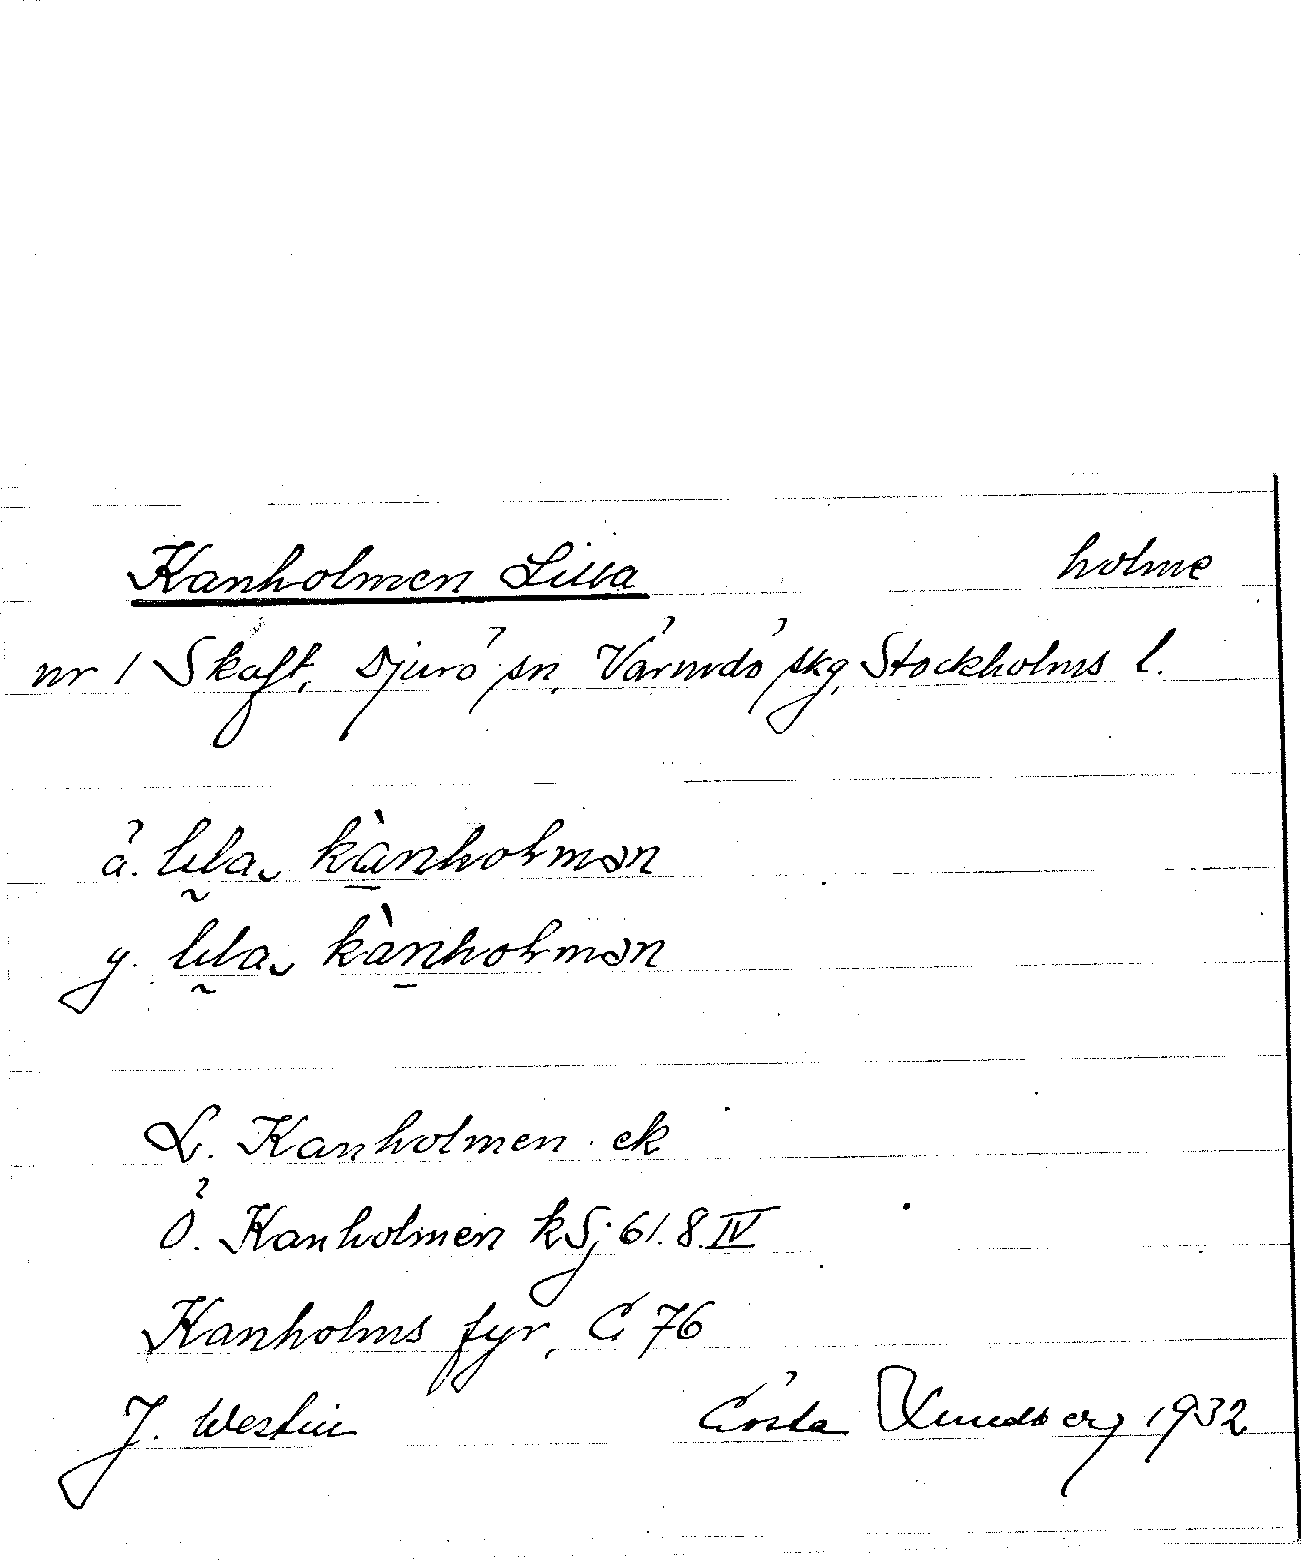 Kanholmen Lilla holme
nr 1 Skaft, Djurö sn, Värmdö skg, Stockholms l.
ä. lila kànholmən
y. lila kànholmən
L. Kanholmen ek
Ö. Kanholmen kSj 61.8.IV
Kanholms fyr, C 76
J. Westin Gösta Lundberg 1932